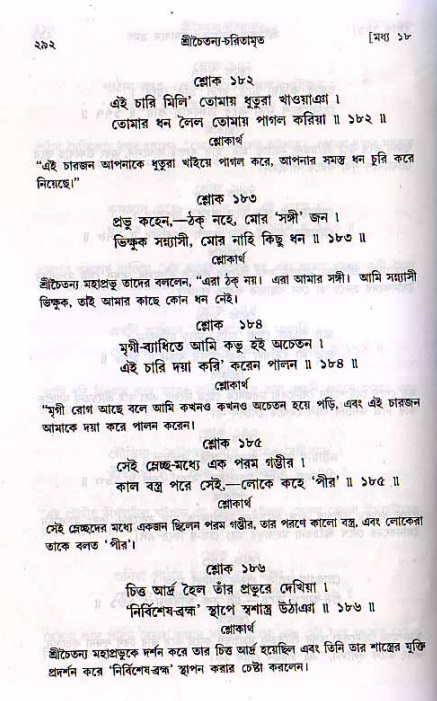 ২৯২ শ্রীচৈতন্য-চরিতামৃত [মধ্য ১৮
শ্লোক ১৮২
এই চারি মিলি' তোমায় ধুতুরা খাওয়াঞা ।
তোমার ধন লৈল তোমায় পাগল করিয়া ॥ ১৮২ ॥
শ্লোকার্থ
“এই চারজন আপনাকে ধুতুরা খাইয়ে পাগল করে, আপনার সমস্ত ধন চুরি করে
নিয়েছে।”
শ্লোক ১৮৩
প্রভু কহেন,—ঠক্ নহে, মোর 'সঙ্গী' জন ।
ভিক্ষুক সন্ন্যাসী, মোর নাহি কিছু ধন ॥ ১৮৩ ॥
শ্লোকার্থ
শ্রীচৈতন্য মহাপ্রভু তাদের বললেন, “এরা ঠক্ নয়। এরা আমার সঙ্গী। আমি সন্ন্যাসী
ভিক্ষুক, তাই আমার কাছে কোন ধন নেই।
শ্লোক ১৮৪
মৃগী-ব্যাধিতে আমি কভু হই অচেতন ।
এই চারি দয়া করি' করেন পালন ॥ ১৮৪ ॥
শ্লোকার্থ
“মৃগী রোগ আছে বলে আমি কখনও কখনও অচেতন হয়ে পড়ি, এবং এই চারজন
আমাকে দয়া করে পালন করেন।
শ্লোক ১৮৫
সেই ম্লেচ্ছ-মধ্যে এক পরম গম্ভীর ।
কাল বস্ত্র পরে সেই,—লোকে কহে 'পীর' ॥ ১৮৫ ॥
শ্লোকার্থ
সেই ম্লেচ্ছদের মধ্যে একজন ছিলেন পরম গম্ভীর, তার পরণে কালো বস্ত্র, এবং লোকেরা
তাকে বলত 'পীর'।
শ্লোক ১৮৬
চিত্ত আর্দ্র হৈল তাঁর প্রভুরে দেখিয়া ।
'নির্বিশেষ-ব্রহ্ম' স্থাপে স্বশাস্ত্র উঠাঞা ॥ ১৮৬ ॥
শ্লোকার্থ
শ্রীচৈতন্য মহাপ্রভুকে দর্শন করে তার চিত্ত আর্দ্র হয়েছিল এবং তিনি তার শাস্ত্রের যুক্তি
প্রদর্শন করে 'নির্বিশেষ-ব্রহ্ম' স্থাপন করার চেষ্টা করলেন।